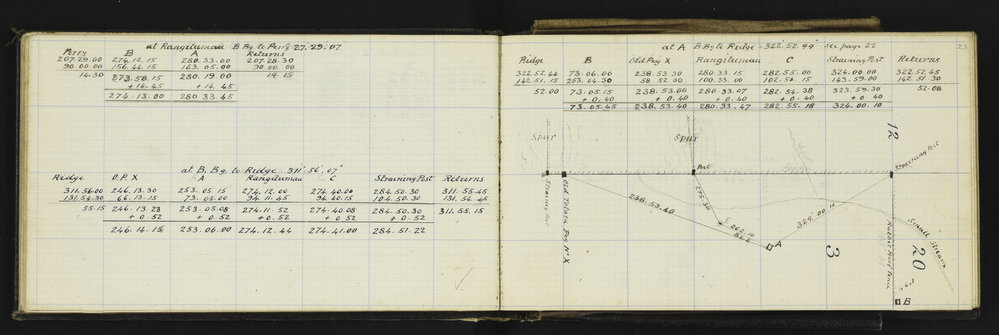 at Rangitumau B. Bg to Perry 27.29.07
Perry B A Returns
207.29.00 274.12.15 280.33.00 207.28.30
90.00.00 156.44.15 163.05.00 90.00.00
14.30 273.58.15 280.19.00 14.15
+14.45 +14.45
274.13.00 280.33.45
at B. Bg. to Ridge 311°56'.07"
Ridge O.P. X A Rangitumau C Straining Post Returns
311.56.00 246.13.30 253.05.15 274.12.00 274.40.00 284.50.30 311.55.45
131.54.30 66.13.15 73.05.00 94.11.45 94.40.15 104.50.30 131.54.45
55.15 246.13.23 253.05.08 274.11.52 274.40.08 284.50.30 311.55.15
+0.52 +0.52 +0.52 +0.52 +0.52
246.14.15 253.06.00 274.12.44 274.41.00 284.51.22
23
at A B. Bg to Ridge 322.52.44 see page 22
Ridge B Old Peg X Rangitumau C Straining Post Returns
322.52.44 73.06.00 238.53.30 280.33.15 282.55.00 324.00.00 322.52.45
142.51.15 253.04.30 58.52.30 100.33.00 102.54.15 143.59.00 142.51.30
52.00 73.05.15 238.53.00 280.33.07 282.54.38 323.59.30 52.08
+0.40 +0.40 +0.40 +0.40 +0.40
73.05.45 238.53.40 280.33.47 282.55.18 324.00.10
Spur
Spur
12
Straining Post
Post
Straining Post
Old Totara Peg No X
238.53.40
275.30
262.10
324.00.10
A
3
Small Stream
20
Rabbit Proof Fence
B